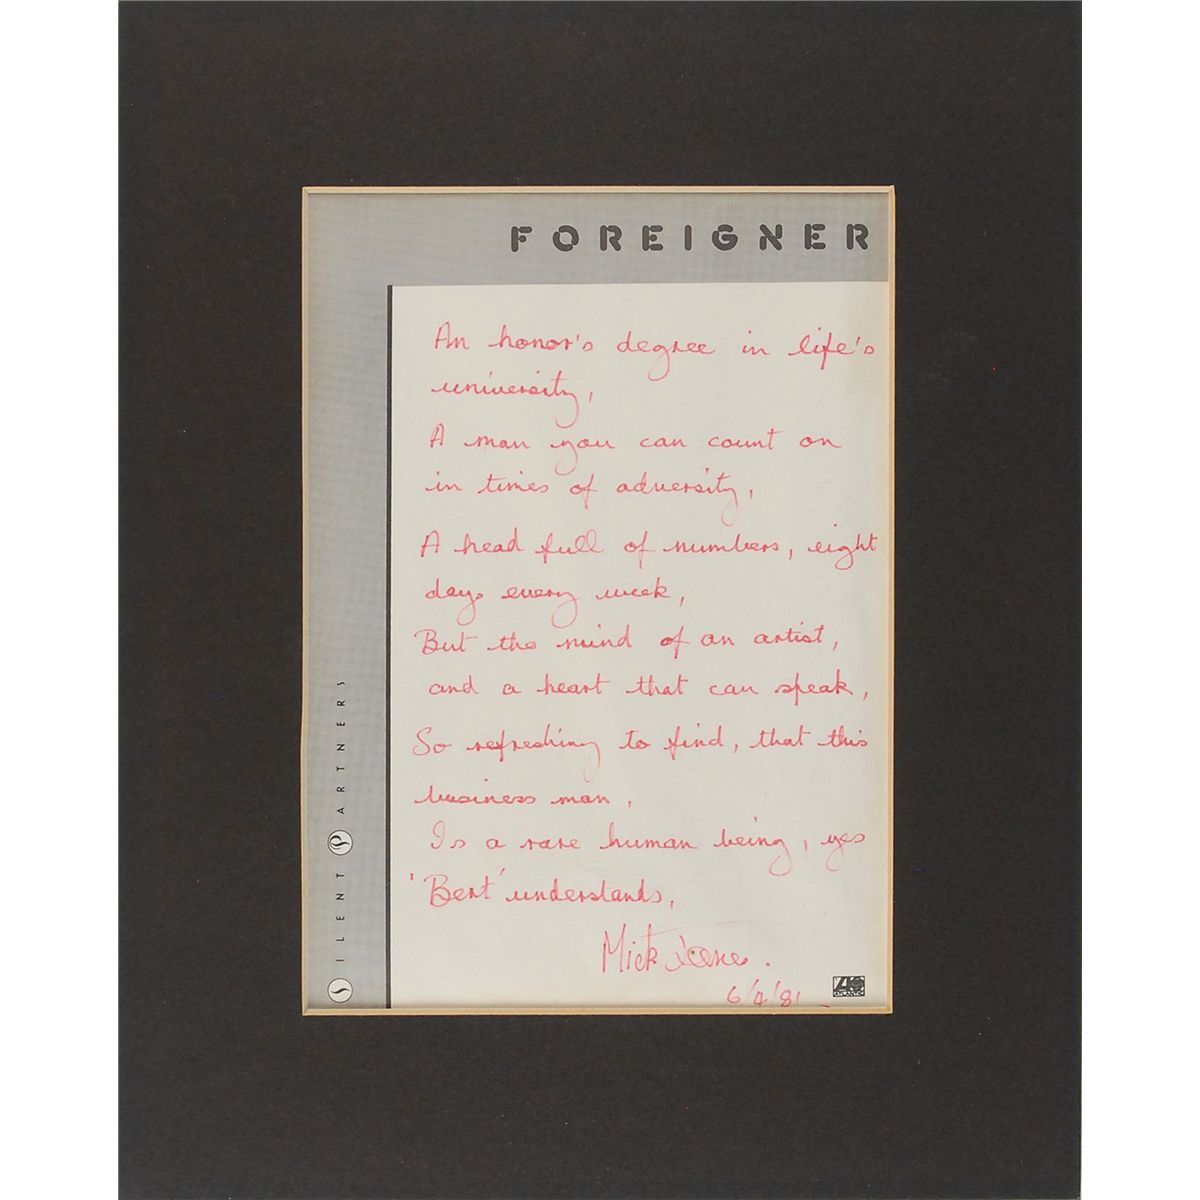 FOREIGNER
An honor's degree in life's
university,
A man you can count on
in times of adversity,
A head full of numbers, eight
days every week,
But the mind of an artist,
and a heart that can speak,
So refreshing to find, that this
business man,
Is a rare human being, yes
'Bert' understands,
Mick Jones.
6/4/81
SILENT PARTNERS
ATLANTIC